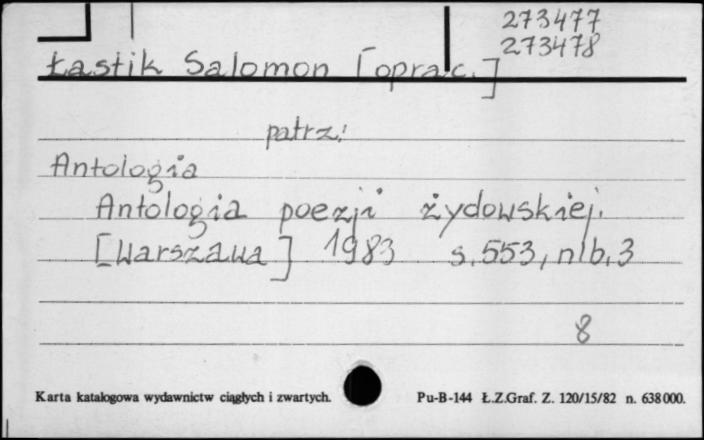 273477
273478
Łastik Salomon [oprac.]
patrz:
Antologia
Antologia poezji żydowskiej.
[Warszawa] 1983 s. 553, nlb. 3
8
Karta katalogowa wydawnictw ciągłych i zwartych. Pu-B-144 Ł.Z.Graf. Z. 120/15/82 n. 638000.